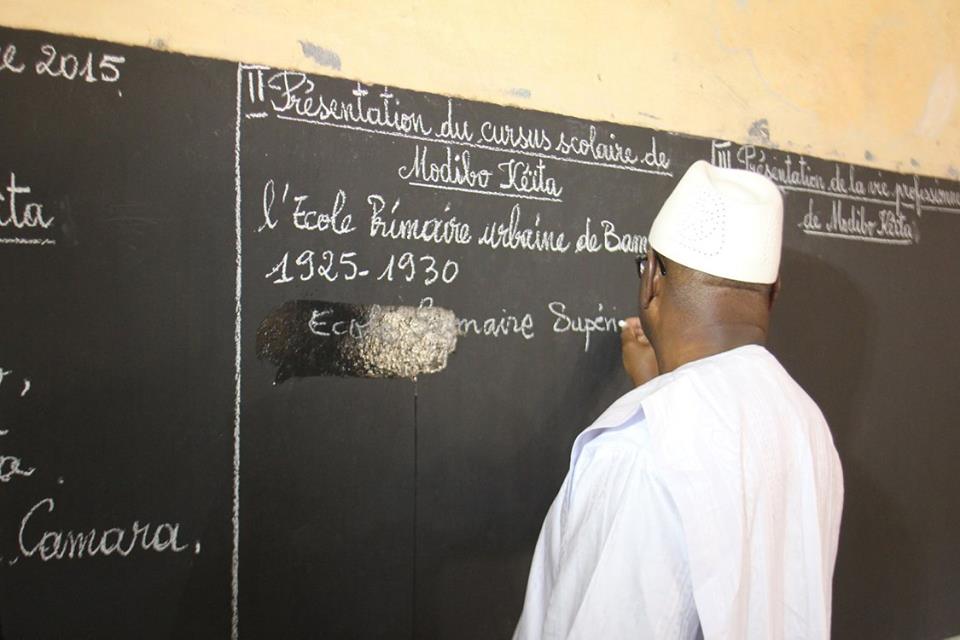 2015
ita
Camara.
II Présentation du cursus scolaire de
Modibo Kéita
l'Ecole Primaire urbaine de Bam
1925-1930
Ecole Primaire Supéri
III Présentation de la vie professionne
de Modibo Kéita